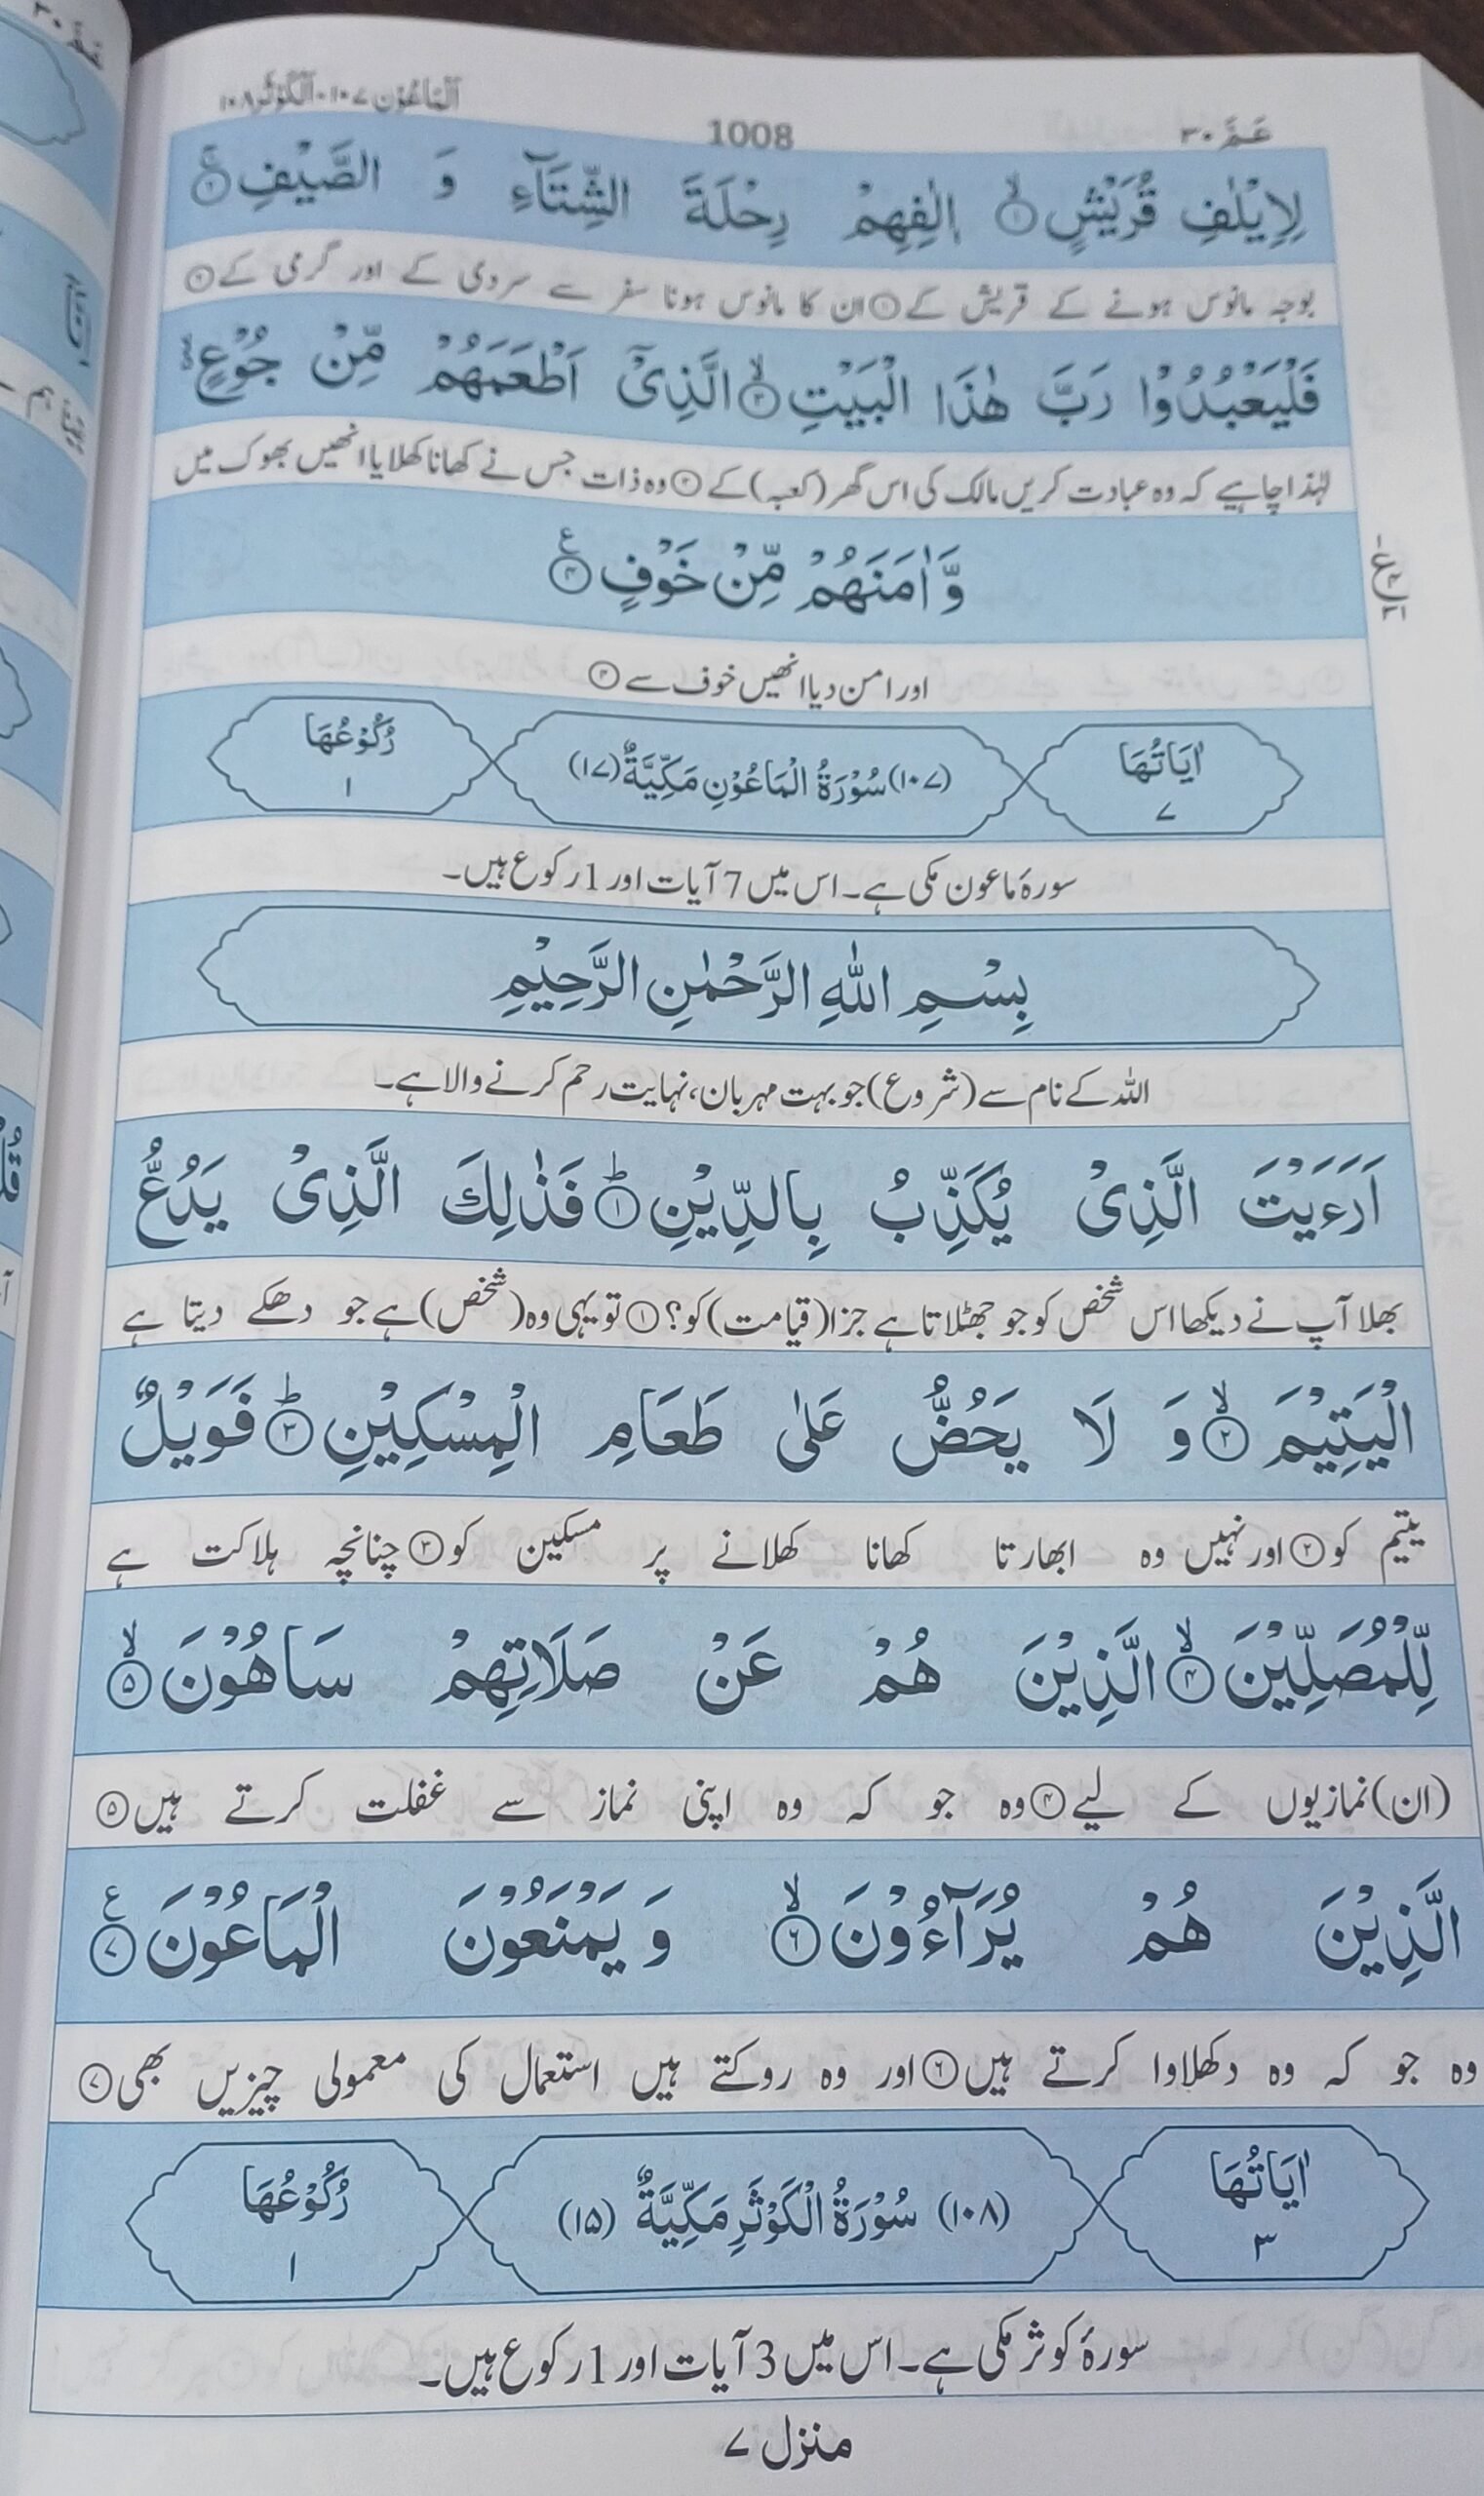 عَمَّ ٣٠
1008
اَلْمَاعُوْن ١٠٧-اَلْكَوْثَر ١٠٨
لِاِيْلٰفِ قُرَيْشٍ ۙ﴿١﴾ اٖلٰفِهِمْ رِحْلَةَ الشِّتَآءِ وَ الصَّيْفِ ۚ﴿٢﴾
بوجہ مانوس ہونے کے قریش کے ① ان کا مانوس ہونا سفر سے سردی کے اور گرمی کے ②
فَلْيَعْبُدُوْا رَبَّ هٰذَا الْبَيْتِ ۙ﴿٣﴾ الَّذِيْٓ اَطْعَمَهُمْ مِّنْ جُوْعٍ
لہٰذا چاہیے کہ وہ عبادت کریں مالک کی اس گھر (کعبہ) کے ③ وہ ذات جس نے کھانا کھلایا انھیں بھوک میں
وَّ اٰمَنَهُمْ مِّنْ خَوْفٍ ﴿٤﴾ ع
اور امن دیا انھیں خوف سے ④
اٰيَاتُهَا ٧
(١٠٧) سُوْرَةُ الْمَاعُوْنِ مَكِّيَّةٌ (١٧)
رُكُوْعُهَا ١
سورۂ ماعون مکی ہے۔ اس میں 7 آیات اور 1 رکوع ہیں۔
بِسْمِ اللّٰهِ الرَّحْمٰنِ الرَّحِيْمِ
اللہ کے نام سے (شروع) جو بہت مہربان، نہایت رحم کرنے والا ہے۔
اَرَءَيْتَ الَّذِيْ يُكَذِّبُ بِالدِّيْنِ ؕ﴿١﴾ فَذٰلِكَ الَّذِيْ يَدُعُّ
بھلا آپ نے دیکھا اس شخص کو جو جھٹلاتا ہے جزا (قیامت) کو؟ ① تو یہی وہ (شخص) ہے جو دھکے دیتا ہے
الْيَتِيْمَ ۙ﴿٢﴾ وَ لَا يَحُضُّ عَلٰى طَعَامِ الْمِسْكِيْنِ ؕ﴿٣﴾ فَوَيْلٌ
یتیم کو ② اور نہیں وہ ابھارتا کھانا کھلانے پر مسکین کو ③ چنانچہ ہلاکت ہے
لِّلْمُصَلِّيْنَ ۙ﴿٤﴾ الَّذِيْنَ هُمْ عَنْ صَلَاتِهِمْ سَاهُوْنَ ۙ﴿٥﴾
(ان) نمازیوں کے لیے ④ وہ جو کہ وہ اپنی نماز سے غفلت کرتے ہیں ⑤
الَّذِيْنَ هُمْ يُرَآءُوْنَ ۙ﴿٦﴾ وَ يَمْنَعُوْنَ الْمَاعُوْنَ ﴿٧﴾ ع
وہ جو کہ وہ دکھلاوا کرتے ہیں ⑥ اور وہ روکتے ہیں استعمال کی معمولی چیزیں بھی ⑦
اٰيَاتُهَا ٣
(١٠٨) سُوْرَةُ الْكَوْثَرِ مَكِّيَّةٌ (١٥)
رُكُوْعُهَا ١
سورۂ کوثر مکی ہے۔ اس میں 3 آیات اور 1 رکوع ہیں۔
منزل ٧